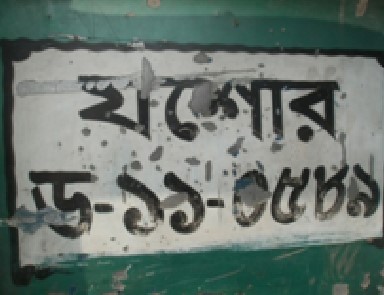 যশোর
ড-১১-০৫৪৯